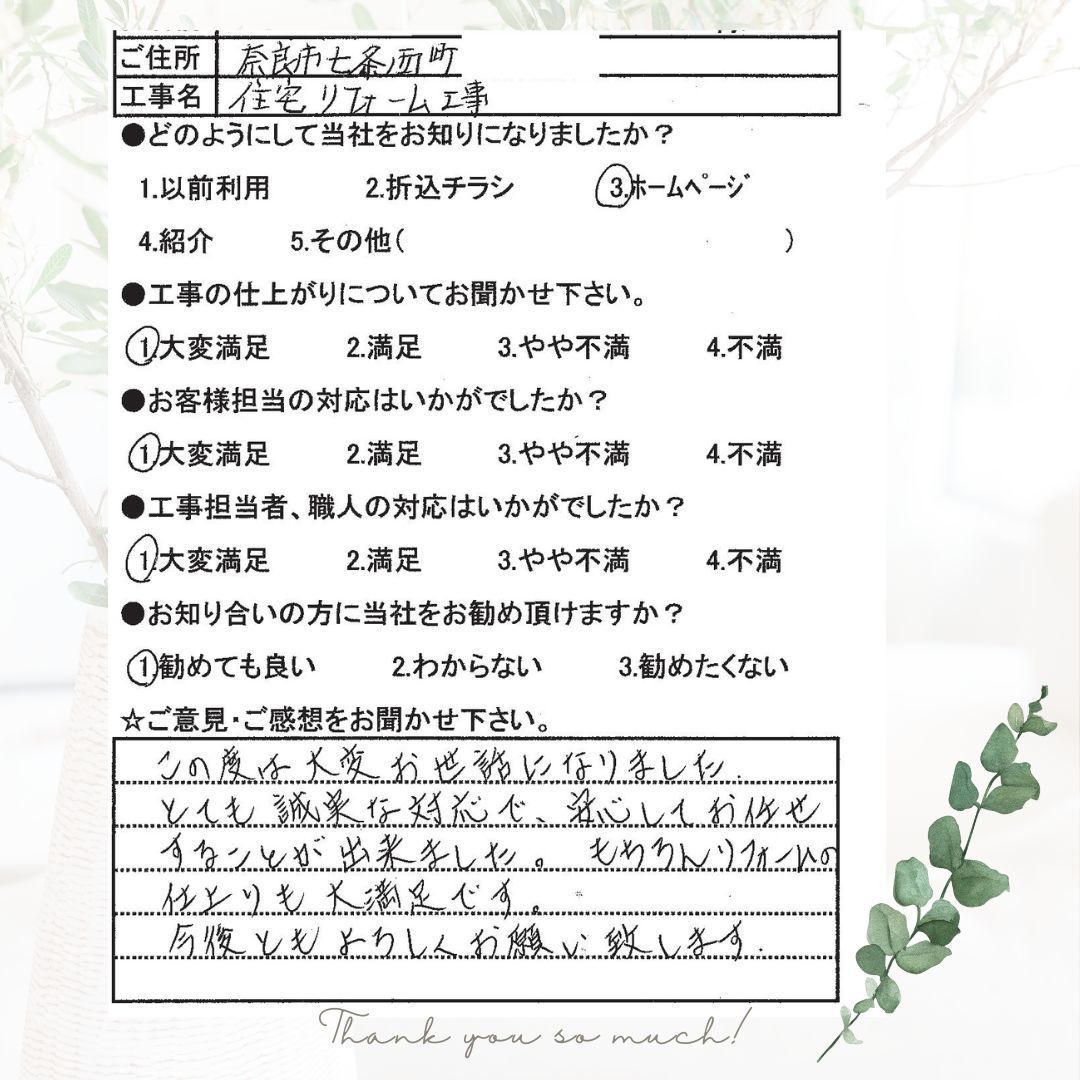 ご住所 奈良市七条西町
工事名 住宅リフォーム工事
●どのようにして当社をお知りになりましたか？
1.以前利用 2.折込チラシ 3.ホームページ
4.紹介 5.その他( )
●工事の仕上がりについてお聞かせ下さい。
1.大変満足 2.満足 3.やや不満 4.不満
●お客様担当の対応はいかがでしたか？
1.大変満足 2.満足 3.やや不満 4.不満
●工事担当者、職人の対応はいかがでしたか？
1.大変満足 2.満足 3.やや不満 4.不満
●お知り合いの方に当社をお勧め頂けますか？
1.勧めても良い 2.わからない 3.勧めたくない
☆ご意見・ご感想をお聞かせ下さい。
この度は大変お世話になりました.
とても誠実な対応で、安心してお任せ
することが出来ました。 もちろんリフォームの
仕上りも大満足です。
今後ともよろしくお願い致します.
Thank you so much!